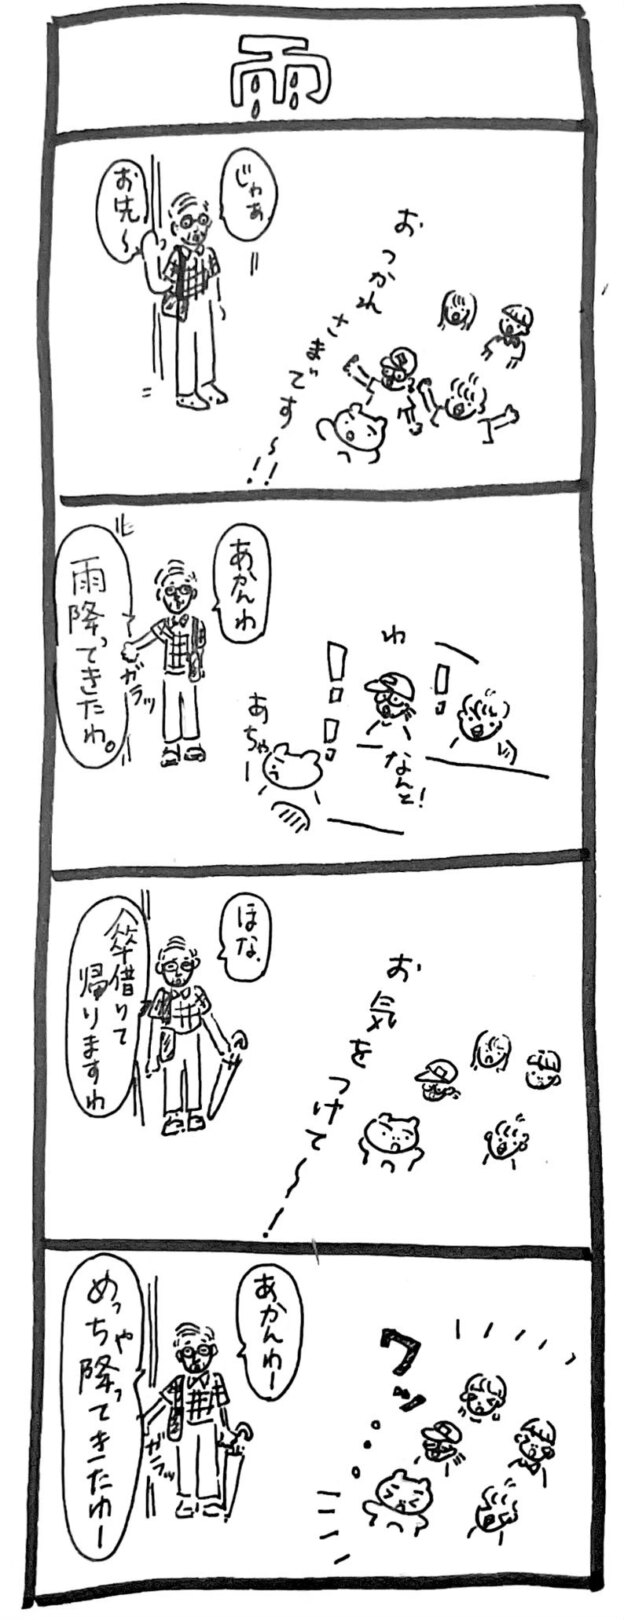 雨
じゃあ
お先〜
おつかれさまです〜!!
あかんわ
雨降ってきたわ。
ガラッ
わ
!!
!!
なんと!
あちゃー
ほな、
傘借りて
帰りますわ
お気をつけて〜
あかんわー
めっちゃ降ってきたわー
ガラッ
ワッ